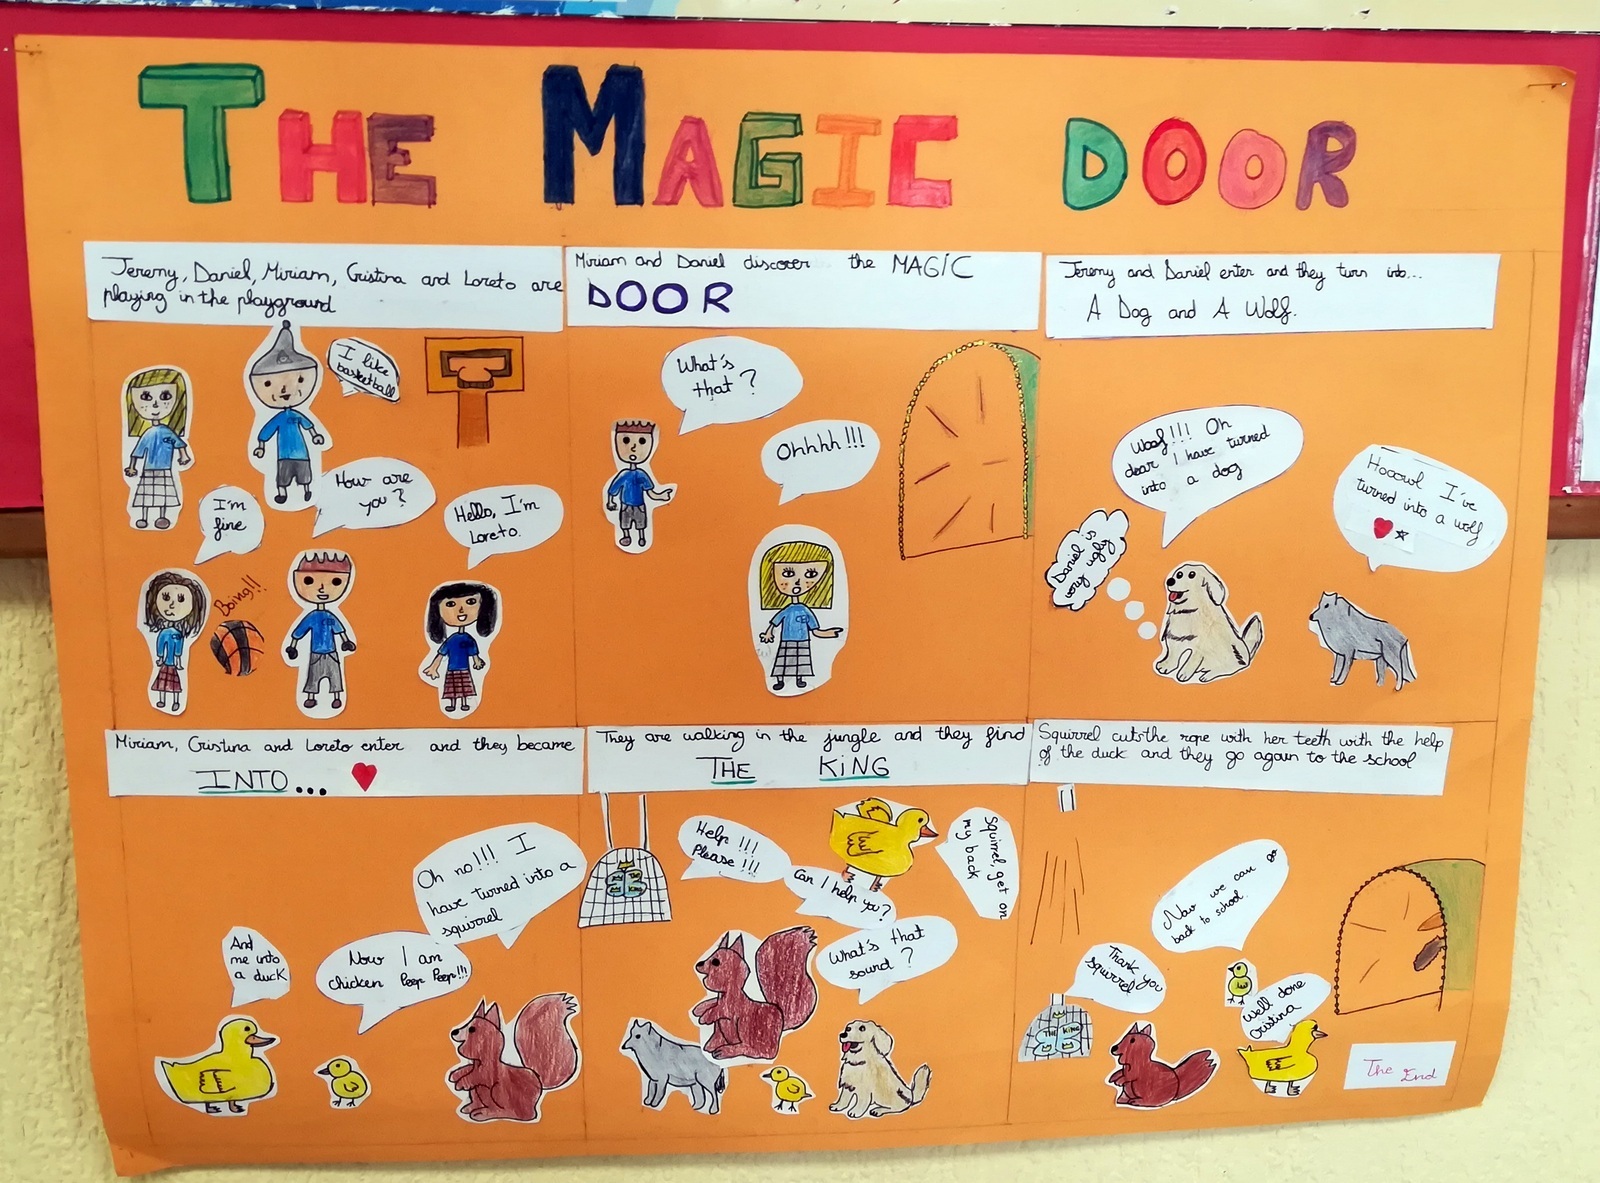 THE MAGIC DOOR
Jeremy, Daniel, Miriam, Cristina and Loreto are
playing in the playground
I like
basketball
How are
you?
I'm
fine
Hello, I'm
Loreto.
Boing!!
Miriam and Daniel discover the MAGIC
DOOR
What's
that?
Ohhhh!!!
Jeremy and Daniel enter and they turn into...
A Dog and A Wolf.
Woof!!! Oh
dear I have turned
into a dog
Daniel is
very ugly
now
Hooowl I've
turned into a wolf
Miriam, Cristina and Loreto enter and they became
INTO...
And
me into
a duck
Now I am
chicken Peep Peep!!!
Oh no!!! I
have turned into a
squirrel
They are walking in the jungle and they find
THE KING
Help!!!
Please!!!
Can I help you?
Squirrel, get on
my back
What's that
sound?
Squirrel cuts the rope with her teeth with the help
of the duck and they go again to the school
Now we can go
back to school.
Thank you
squirrel
THE KING
Well done
Cristina
The End